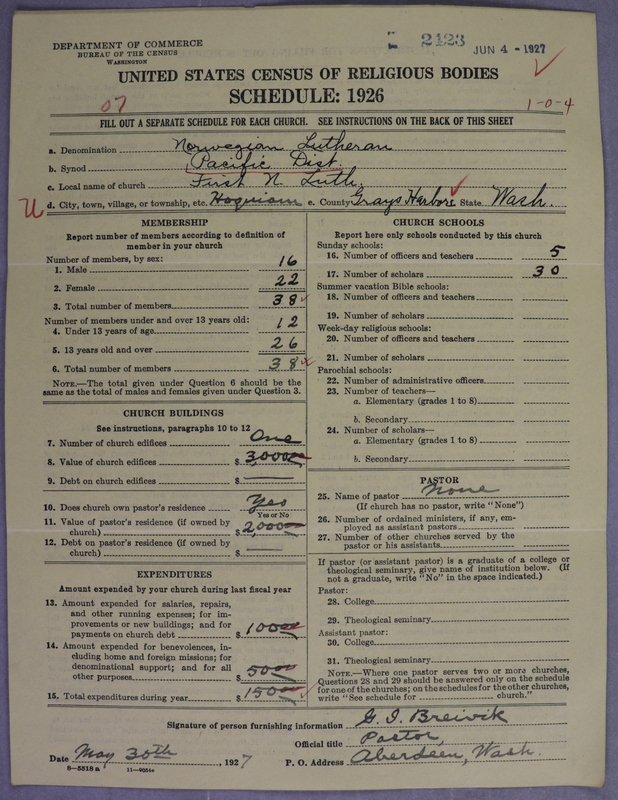 DEPARTMENT OF COMMERCE
BUREAU OF THE CENSUS
WASHINGTON
2423
JUN 4 - 1927
UNITED STATES CENSUS OF RELIGIOUS BODIES
SCHEDULE: 1926
07
1-0-4
FILL OUT A SEPARATE SCHEDULE FOR EACH CHURCH. SEE INSTRUCTIONS ON THE BACK OF THIS SHEET
a. Denomination Norwegian Lutheran
b. Synod Pacific Dist.
c. Local name of church First N. Luth.
U d. City, town, village, or township, etc. Hoquiam e. County Grays Harbor State Wash.
MEMBERSHIP
Report number of members according to definition of
member in your church
Number of members, by sex:
1. Male 16
2. Female 22
3. Total number of members 38
Number of members under and over 13 years old:
4. Under 13 years of age 12
5. 13 years old and over 26
6. Total number of members 38
NOTE.—The total given under Question 6 should be the
same as the total of males and females given under Question 3.
CHURCH BUILDINGS
See instructions, paragraphs 10 to 12
7. Number of church edifices One
8. Value of church edifices $ 3,000.00
9. Debt on church edifices $ —
10. Does church own pastor's residence Yes
Yes or No
11. Value of pastor's residence (if owned by
church) $ 2,000.00
12. Debt on pastor's residence (if owned by
church) $ —
EXPENDITURES
Amount expended by your church during last fiscal year
13. Amount expended for salaries, repairs,
and other running expenses; for im-
provements or new buildings; and for
payments on church debt $ 100.00
14. Amount expended for benevolences, in-
cluding home and foreign missions; for
denominational support; and for all
other purposes $ 50.00
15. Total expenditures during year $ 150.00
CHURCH SCHOOLS
Report here only schools conducted by this church
Sunday schools:
16. Number of officers and teachers 5
17. Number of scholars 30
Summer vacation Bible schools:
18. Number of officers and teachers
19. Number of scholars
Week-day religious schools:
20. Number of officers and teachers
21. Number of scholars
Parochial schools:
22. Number of administrative officers
23. Number of teachers—
a. Elementary (grades 1 to 8)
b. Secondary
24. Number of scholars—
a. Elementary (grades 1 to 8)
b. Secondary
PASTOR
25. Name of pastor None
(If church has no pastor, write "None")
26. Number of ordained ministers, if any, em-
ployed as assistant pastors
27. Number of other churches served by the
pastor or his assistants
If pastor (or assistant pastor) is a graduate of a college or
theological seminary, give name of institution below. (If
not a graduate, write "No" in the space indicated.)
Pastor:
28. College
29. Theological seminary
Assistant pastor:
30. College
31. Theological seminary
NOTE.—Where one pastor serves two or more churches,
Questions 28 and 29 should be answered only on the schedule
for one of the churches; on the schedules for the other churches,
write "See schedule for church."
Signature of person furnishing information G. I. Breivik
Official title Pastor
Date May 30th, 1927 P. O. Address Aberdeen, Wash.
8-5518 a